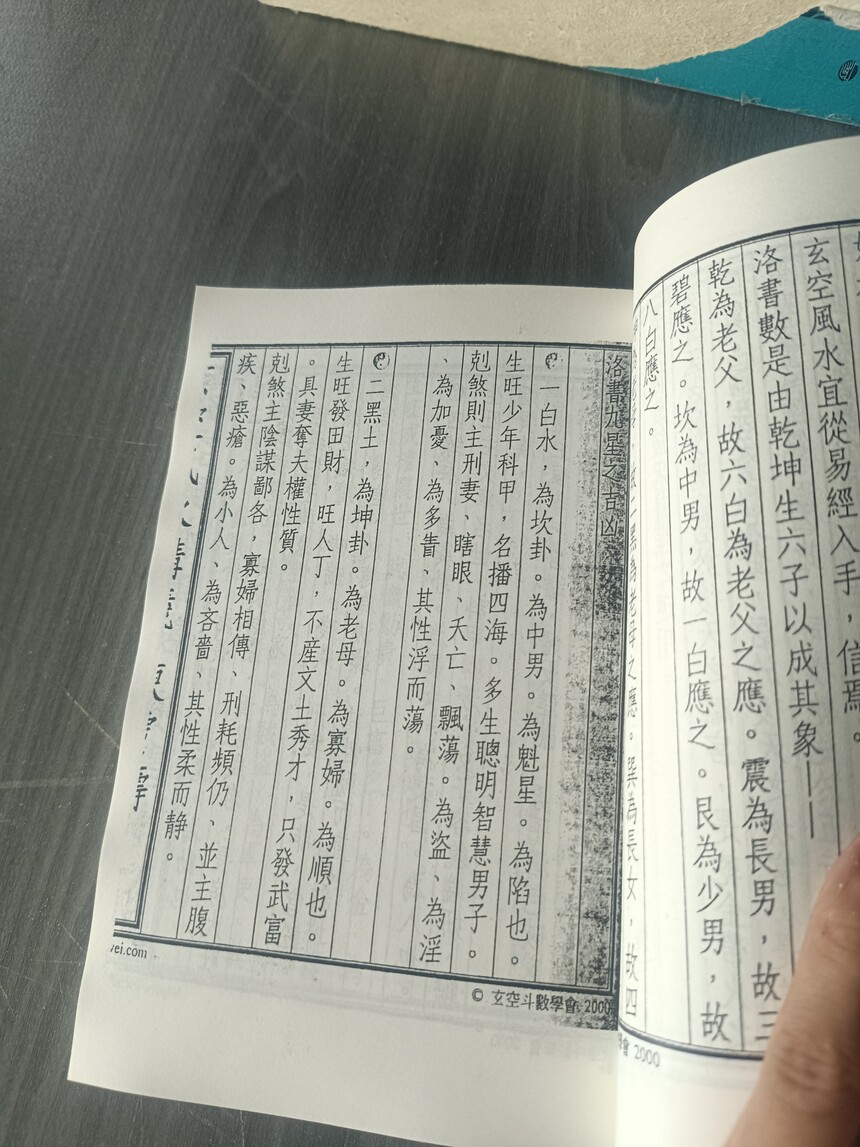 玄空風水宜從易經入手，信焉。
洛書數是由乾坤生六子以成其象——
乾為老父，故六白為老父之應。震為長男，故三
碧應之。坎為中男，故一白應之。艮為少男，故
八白應之。
二黑為老母之應。巽為長女，故四
洛書九星之吉凶
一白水，為坎卦。為中男。為魁星。為陷也。
生旺少年科甲，名播四海。多生聰明智慧男子。
剋煞則主刑妻、瞎眼、夭亡、飄蕩。為盜、為淫
、為加憂、為多眚、其性浮而蕩。
二黑土，為坤卦。為老母。為寡婦。為順也。
生旺發田財，旺人丁，不產文士秀才，只發武富
。具妻奪夫權性質。
剋煞主陰謀鄙各，寡婦相傳、刑耗頻仍、並主腹
疾、惡瘡。為小人、為吝嗇、其性柔而静。
vei.com
© 玄空斗數學會 2000
學會 2000